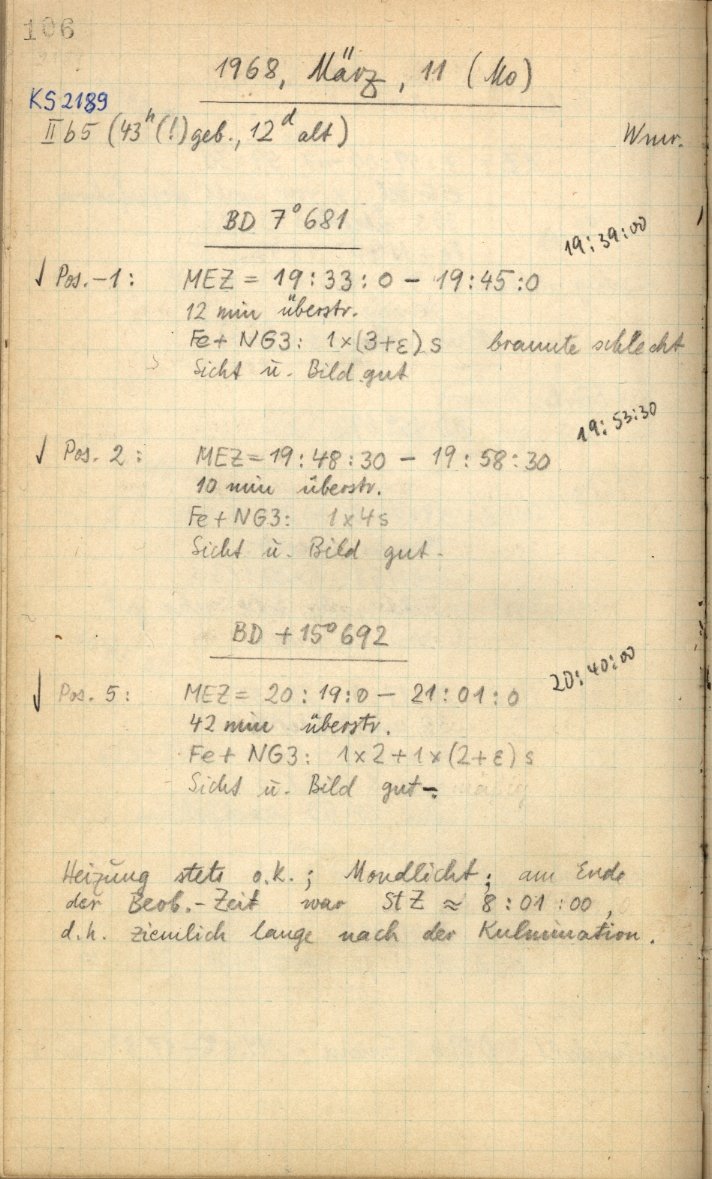 106
1968, März, 11 (Mo)
KS2189
II b5 (43ʰ(!) geb., 12ᵈ alt) Wmr.
BD 7°681
19:39:00
√ Pos. -1: MEZ = 19:33:0 - 19:45:0
12 min überstr.
Fe + NG3: 1x(3+ε) s brannte schlecht
Sicht u. Bild gut
19:53:30
√ Pos. 2: MEZ = 19:48:30 - 19:58:30
10 min überstr.
Fe + NG3: 1x4s
Sicht u. Bild gut -
BD +15°692
20:40:00
√ Pos. 5: MEZ = 20:19:0 - 21:01:0
42 min überstr.
Fe + NG3: 1x2 + 1x(2+ε) s
Sicht u. Bild gut -
Heizung stets o.k.; Mondlicht; am Ende
der Beob.-Zeit war StZ ≈ 8:01:00,
d.h. ziemlich lange nach der Kulmination.